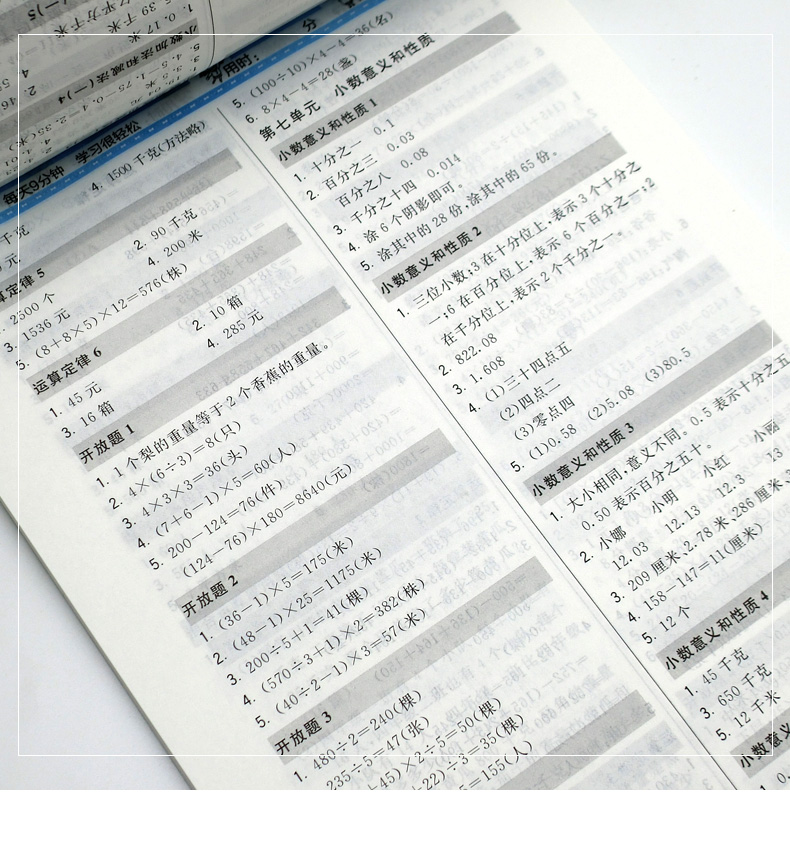 每天9分钟 学习很轻松
4. 1500 千克(方法略)
2. 90 千克
4. 200 米
算定律 5
2500 个
3. 1536 元
2. 10 箱
5. (8+8×5)×12=576(株)
4. 285 元
运算定律 6
1. 45 元
3. 16 箱
开放题 1
1. 1 个梨的重量等于 2 个香蕉的重量。
2. 4×(6÷3)=8(只)
3. 4×3×3=36(头)
4. (7+6-1)×5=60(人)
5. 200-124=76(件)
(124-76)×180=8640(元)
开放题 2
1. (36-1)×5=175(米)
2. (48-1)×25=1175(米)
3. 200÷5+1=41(棵)
4. (570÷3+1)×2=382(株)
5. (40÷2-1)×3=57(米)
开放题 3
1. 480÷2=240(棵)
235÷5=47(张)
+45)×2÷5=50(棵)
+22)÷3=35(棵)
5=155(人)
用时:
分
5. (100÷10)×4-4=36(名)
6. 8×4-4=28(盏)
第七单元 小数意义和性质
小数意义和性质 1
1. 十分之一 0.1
2. 百分之三 0.03
百分之八 0.08
3. 千分之十四 0.014
4. 涂 6 个阴影即可。
5. 涂其中的 28 份,涂其中的 65 份。
小数意义和性质 2
1. 三位小数;3 在十分位上,表示 3 个十分之
一;6 在百分位上,表示 6 个百分之一;2
在千分位上,表示 2 个千分之一。
2. 822.08
3. 1.608
4. (1)三十四点五
(2)四点二
(3)零点四
5. (1)0.58 (2)5.08 (3)80.5
小数意义和性质 3
1. 大小相同,意义不同。0.5 表示十分之五
0.50 表示百分之五十。
2. 小娜 小明 小红 小丽
12.03 12.13 12.3 13
3. 209 厘米、2.78 米、286 厘米、
4. 158-147=11(厘米)
5. 12 个
小数意义和性质 4
1. 45 千克
3. 650 千克
5. 12 千米
小数意